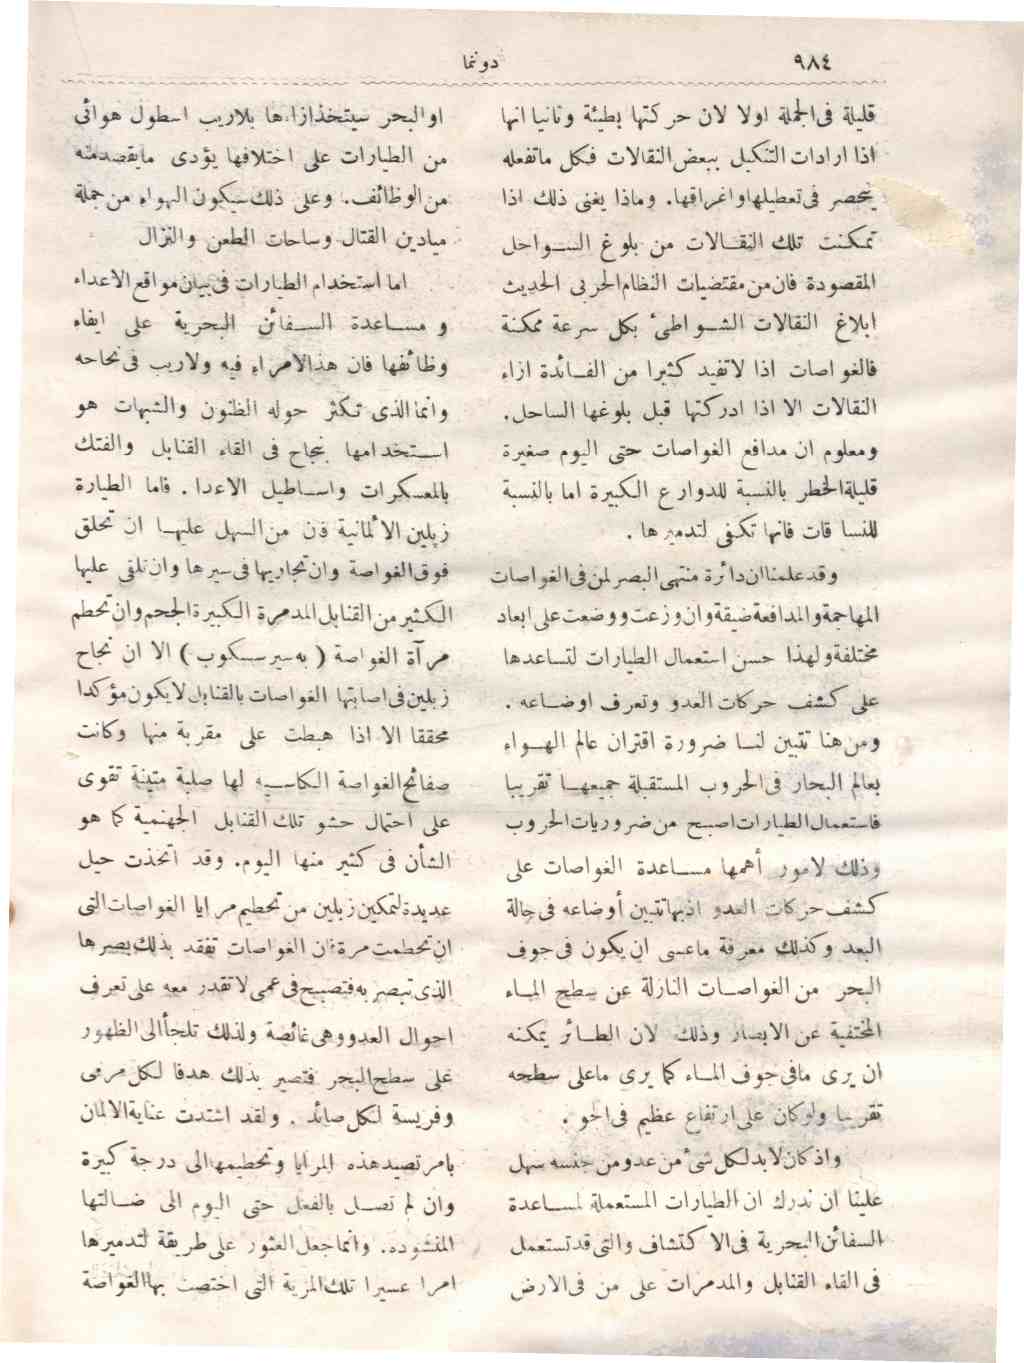 ٩٨٤
دونما
قليلة فى الجملة اولا لان حركتها بطيئة وثانيا انها
اذا ارادات التنكيل ببعض النقالات فكل ماتفعله
ينحصر فى تعطيلها واغراقها. وماذا يغنى ذلك اذا
تمكنت تلك النقالات من بلوغ السواحل
المقصودة فان من مقتضيات النظام الحربى الحديث
ابلاغ النقالات الشواطىء بكل سرعة ممكنة
فالغواصات اذا لاتفيد كثيرا من الفائدة ازاء
النقالات الا اذا ادركتها قبل بلوغها الساحل.
ومعلوم ان مدافع الغواصات حتى اليوم صغيرة
قليلة الخطر بالنسبة للدوارع الكبيرة اما بالنسبة
للنسا قات فانها تكفى لتدميرها .
وقد علمنا ان دائرة منتهى البصر لمن فى الغواصات
المهاجمة والمدافعة ضيقة وان وزعت ووضعت على ابعاد
مختلفة ولهذا حسن استعمال الطيارات لتساعدها
على كشف حركات العدو وتعرف اوضاعه .
ومن هنا تتبين لنا ضرورة اقتران عالم الهواء
بعالم البحار فى الحروب المستقبلة جميعها تقريبا
فاستعمال الطيارات اصبح من ضروريات الحروب
وذلك لامور أهمها مساعدة الغواصات على
كشف حركات العدو اذبها تتبين أوضاعه فى حالة
البعد وكذلك معرفة ماعسى ان يكون فى جوف
البحر من الغواصات النازلة عن سطح الماء
المختفية عن الابصار وذلك لان الطائر يمكنه
ان يرى مافى جوف الماء كما يرى ماعلى سطحه
تقريبا ولوكان على ارتفاع عظيم فى الجو .
واذ كان لابد لكل شىء من عدو من جنسه سهل
علينا ان ندرك ان الطيارات المستعملة لمساعدة
السفائن البحرية فى الاكتشاف والتى قد تستعمل
فى القاء القنابل والمدمرات على من فى الارض
او البحر سيتخذ ازاءها بلاريب اسطول هوائى
من الطيارات على اختلافها يؤدى مايقصد منه
من الوظائف. وعلى ذلك سيكون الهواء من جملة
ميادين القتال وساحات الطعن والنزال
اما استخدام الطيارات فى بيان مواقع الاعداء
و مساعدة السفائن البحرية على ايفاء
وظائفها فان هذا لامراء فيه ولاريب فى نجاحه
وانما الذى تكثر حوله الظنون والشبهات هو
استخدامها بنجاح فى القاء القنابل والفتك
بالمعسكرات واساطيل الاعدا. فاما الطيارة
زپلين الألمانية فان من السهل عليها ان تحلق
فوق الغواصة وان تجاريها فى سيرها وان تلقى عليها
الكثير من القنابل المدمرة الكبيرة الحجم وان تحطم
مرآة الغواصة ( به سيرسسكوپ ) الا ان نجاح
زبلين فى اصابتها الغواصات بالقنابل لا يكون مؤكدا
محققا الا اذا هبطت على مقربة منها وكانت
صفائح الغواصة الكاسيه لها صلبة متينة تقوى
على احتمال حشو تلك القنابل الجهنمية كما هو
الشأن فى كثير منها اليوم. وقد اتخذت حيل
عديدة لتمكين زبلين من تحطيم مرايا الغواصات التى
ان تحطمت مرة فان الغواصات تفقد بذلك بصرها
الذى تبصر به فتصبح فى عمى لاتقدر معه على تعرف
احوال العدو وهى غائصة ولذلك تلجأ الى الظهور
على سطح البحر فتصير بذلك هدفا لكل مرمى
وفريسة لكل صائد . ولقد اشتدت عناية الالمان
بامر تصيد هذه المرايا وتحطيمها الى درجة كبيرة
وان لم تصل بالفعل حتى اليوم الى ضالتها
المنشوده. وانما جعل العثور على طريقة لتدميرها
امرا عسيرا تلك المزية التى اختصت بها الغواصة